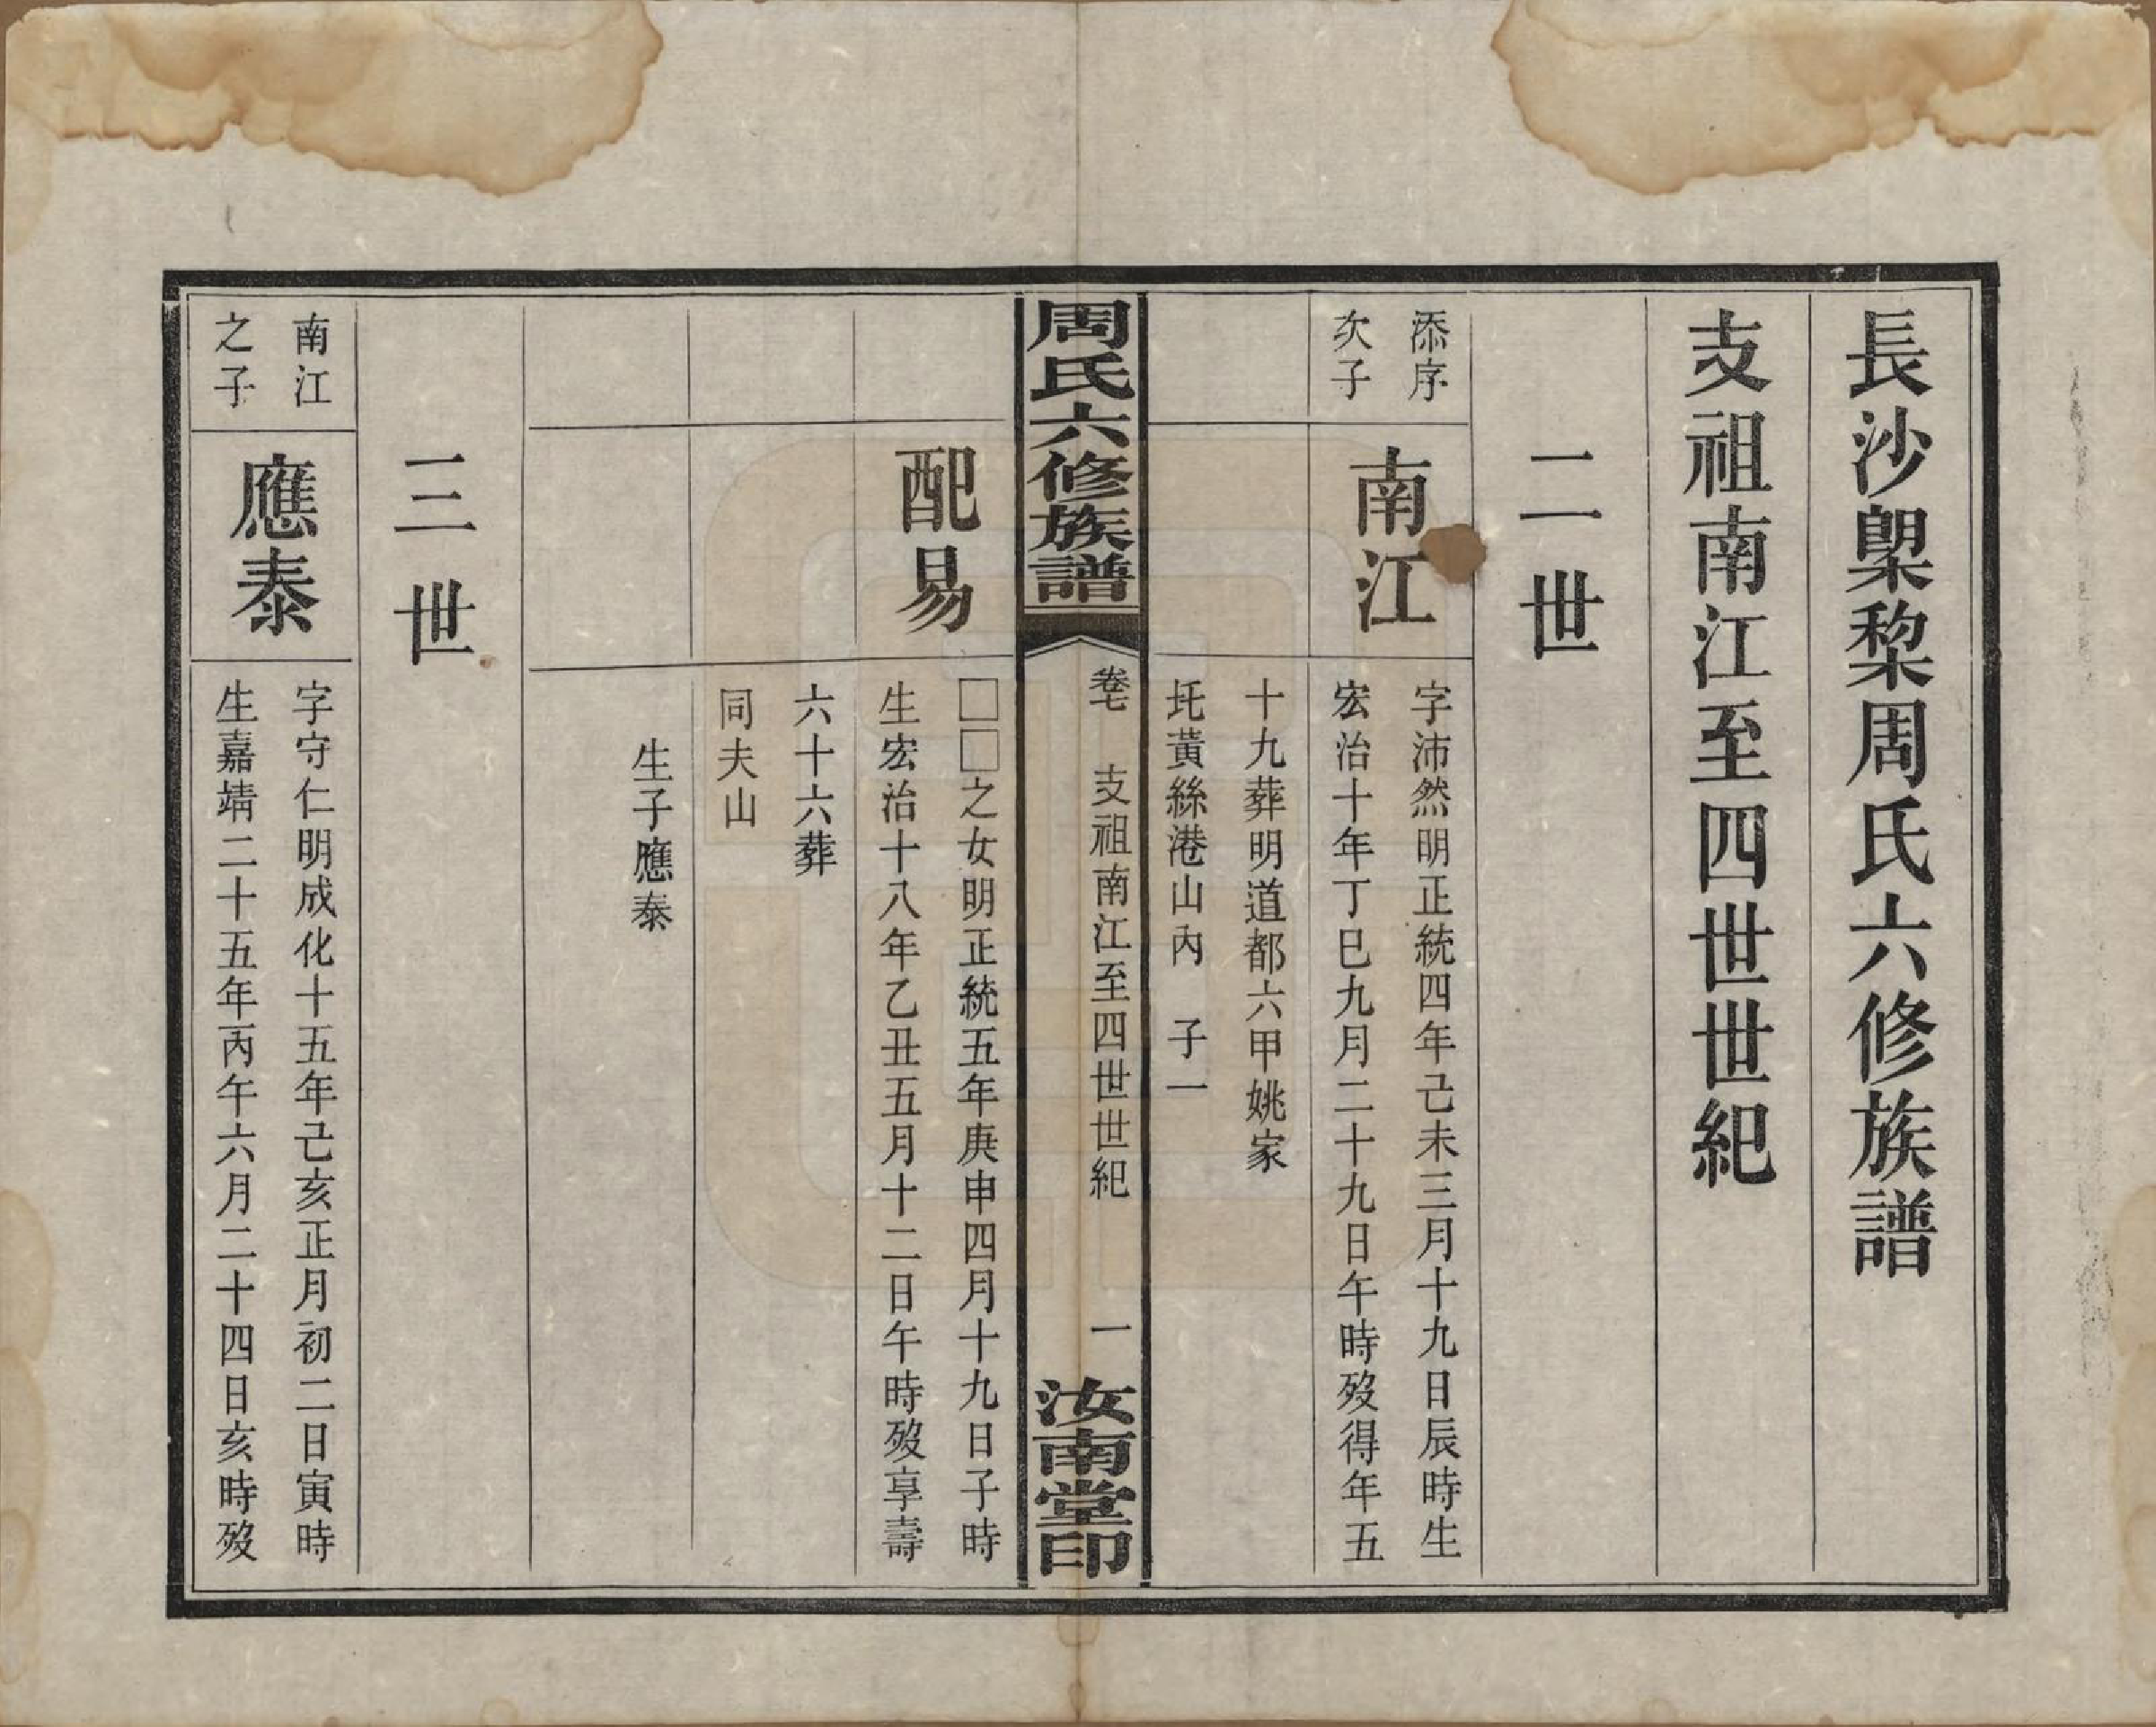 長沙㮚棃周氏六修族譜
支祖南江至四世世紀
二世
添序
次子
南江
字沛然明正統四年己未三月十九日辰時生
宏治十年丁巳九月二十九日午時歿得年五
十九葬明道都六甲姚家
坉黃絲港山內　子一
周氏六修族譜
卷七　支祖南江至四世世紀　一
汝南堂印
配易
□□之女明正統五年庚申四月十九日子時
生宏治十八年乙丑五月十二日午時歿享壽
六十六葬
同夫山
生子應泰
三世
南江
之子
應泰
字守仁明成化十五年己亥正月初二日寅時
生嘉靖二十五年丙午六月二十四日亥時歿